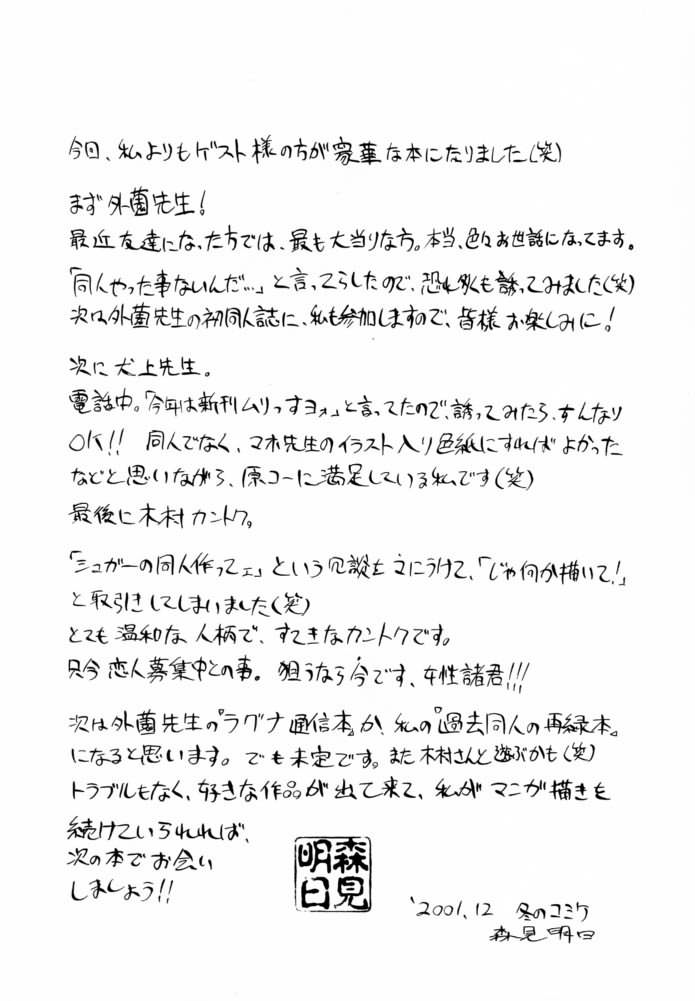 今回、私よりもゲスト様の方が豪華な本になりました(笑)
まず外薗先生!
最近友達になった方では、最も大当りな方。本当、色々お世話になってます。
「同人やった事ないんだ…」と言ってらしたので、恐れ多くも誘ってみました(笑)
次は外薗先生の初同人誌に、私も参加しますので、皆様お楽しみに!
次に犬上先生。
電話中。「今年は新刊ムリっすヨォ」と言ってたので、誘ってみたら、すんなり
OK!! 同人でなく、マホ先生のイラスト入り色紙にすれば よかった
などと思いながら、原コーに満足している私です(笑)
最後に木村カントク。
「シュガーの同人作ってェ」という冗談を まにうけて、「じゃ何か描いて!」
と取引きしてしまいました(笑)
とても温和な人柄で、すてきなカントクです。
只今恋人募集中との事。狙うなら今です、女性諸君!!!
次は外薗先生の『ラグナ通信本』か、私の『過去同人の再録本』
になると思います。でも未定です。また木村さんと遊ぶかも(笑)
トラブルもなく、好きな作品が出て来て、私がマンガ描きを
続けていられれば、
次の本でお会い
しましょう!!
森見
明日
'2001.12 冬のコミケ
森見明日